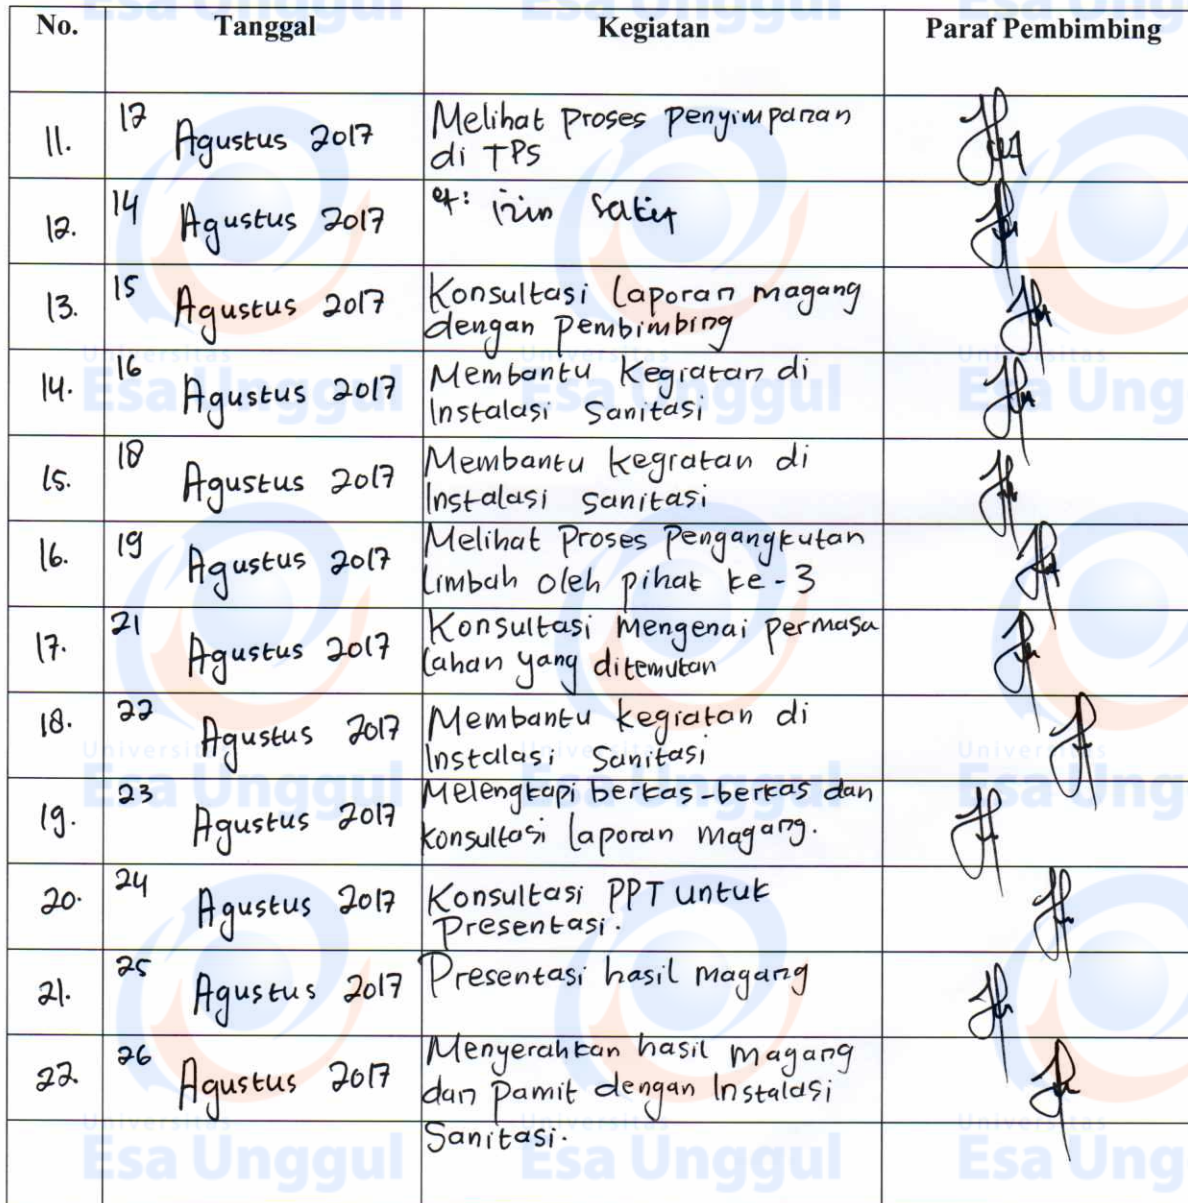 No. Tanggal Kegiatan Paraf Pembimbing
11. 12 Agustus 2017 Melihat Proses Penyimpanan
di TPS
12. 14 Agustus 2017 izin sakit
13. 15 Agustus 2017 Konsultasi Laporan magang
dengan Pembimbing
14. 16 Agustus 2017 Membantu Kegiatan di
Instalasi Sanitasi
15. 18 Agustus 2017 Membantu kegiatan di
Instalasi Sanitasi
16. 19 Agustus 2017 Melihat Proses Pengangkutan
Limbah oleh pihak ke-3
17. 21 Agustus 2017 Konsultasi Mengenai permasa
lahan yang ditemukan
18. 22 Agustus 2017 Membantu kegiatan di
Instalasi Sanitasi
19. 23 Agustus 2017 Melengkapi berkas-berkas dan
konsultasi laporan magang.
20. 24 Agustus 2017 Konsultasi PPT untuk
Presentasi.
21. 25 Agustus 2017 Presentasi hasil magang
22. 26 Agustus 2017 Menyerahkan hasil magang
dan Pamit dengan Instalasi
Sanitasi.
Universitas
Esa Unggul